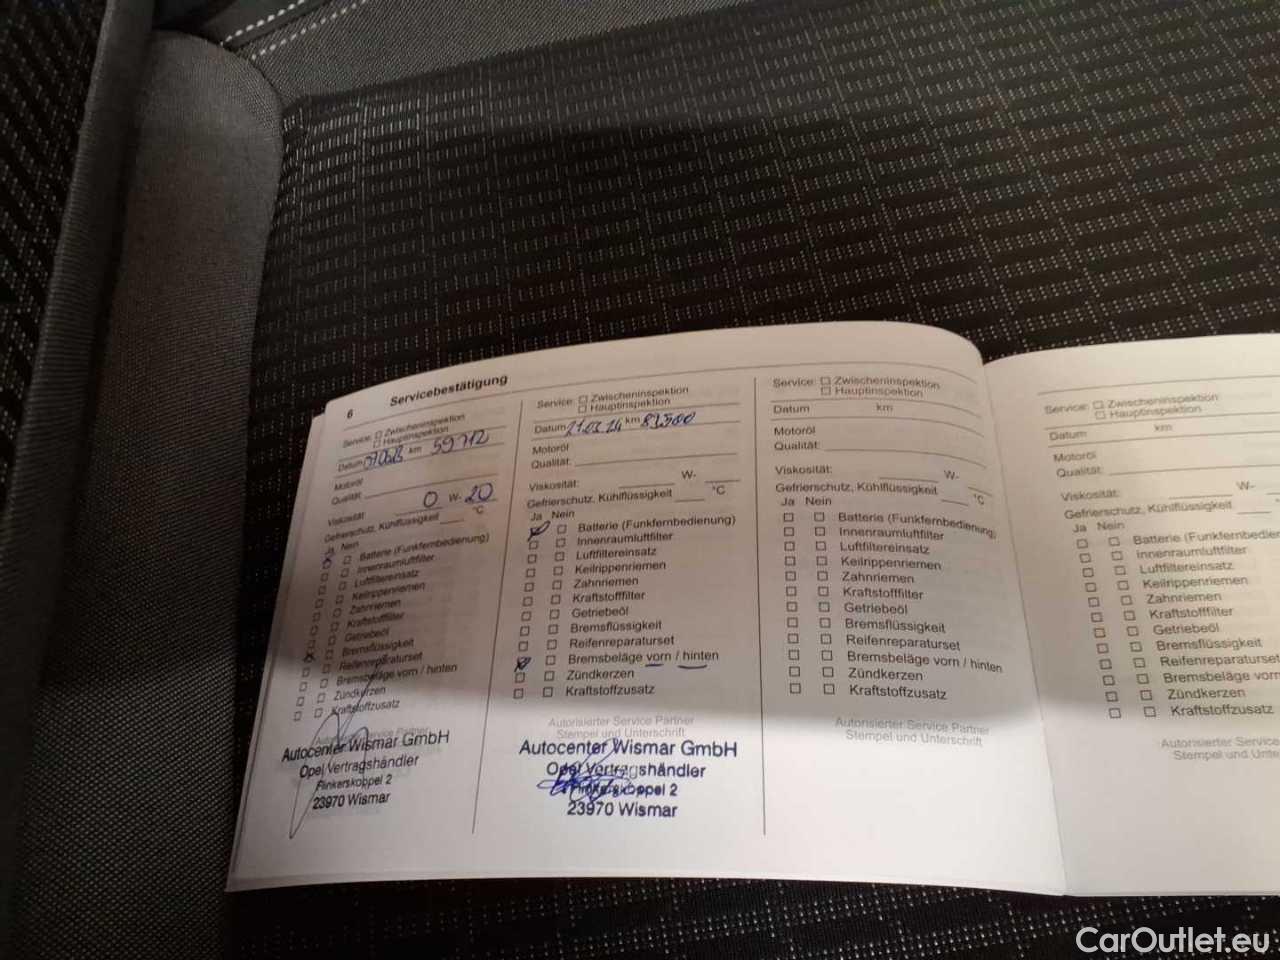 6 Servicebestätigung
Service: Zwischeninspektion
Hauptinspektion
Datum km 59 712
Motoröl
Qualität:
Viskosität 0 W- 20
Gefrierschutz, Kühlflüssigkeit °C
Ja Nein
Batterie (Funkfernbedienung)
Innenraumluftfilter
Luftfiltereinsatz
Keilrippenriemen
Zahnriemen
Kraftstofffilter
Getriebeöl
Bremsflüssigkeit
Reifenreparaturset
Bremsbeläge vorn / hinten
Zündkerzen
Kraftstoffzusatz
Autorisierter Service Partner
Autocenter Wismar GmbH
Opel Vertragshändler
Flinkerskoppel 2
23970 Wismar
Service: Zwischeninspektion
Hauptinspektion
Datum 21.03.24 km 83.500
Motoröl
Qualität:
Viskosität: W-
Gefrierschutz, Kühlflüssigkeit °C
Ja Nein
Batterie (Funkfernbedienung)
Innenraumluftfilter
Luftfiltereinsatz
Keilrippenriemen
Zahnriemen
Kraftstofffilter
Getriebeöl
Bremsflüssigkeit
Reifenreparaturset
Bremsbeläge vorn / hinten
Zündkerzen
Kraftstoffzusatz
Autorisierter Service Partner
Stempel und Unterschrift
Autocenter Wismar GmbH
Opel Vertragshändler
Flinkerskoppel 2
23970 Wismar
Service: Zwischeninspektion
Hauptinspektion
Datum km
Motoröl
Qualität:
Viskosität: W-
Gefrierschutz, Kühlflüssigkeit °C
Ja Nein
Batterie (Funkfernbedienung)
Innenraumluftfilter
Luftfiltereinsatz
Keilrippenriemen
Zahnriemen
Kraftstofffilter
Getriebeöl
Bremsflüssigkeit
Reifenreparaturset
Bremsbeläge vorn / hinten
Zündkerzen
Kraftstoffzusatz
Autorisierter Service Partner
Stempel und Unterschrift
Service: Zwischeninspektion
Hauptinspektion
Datum km
Motoröl
Qualität:
Viskosität: W-
Gefrierschutz, Kühlflüssigkeit
Ja Nein
Batterie (Funkfernbedie
Innenraumluftfilter
Luftfiltereinsatz
Keilrippenriemen
Zahnriemen
Kraftstofffilter
Getriebeöl
Bremsflüssigkeit
Reifenreparaturset
Bremsbeläge vorn
Zündkerzen
Kraftstoffzusatz
Autorisierter Service
Stempel und Unters
CarOutlet.eu